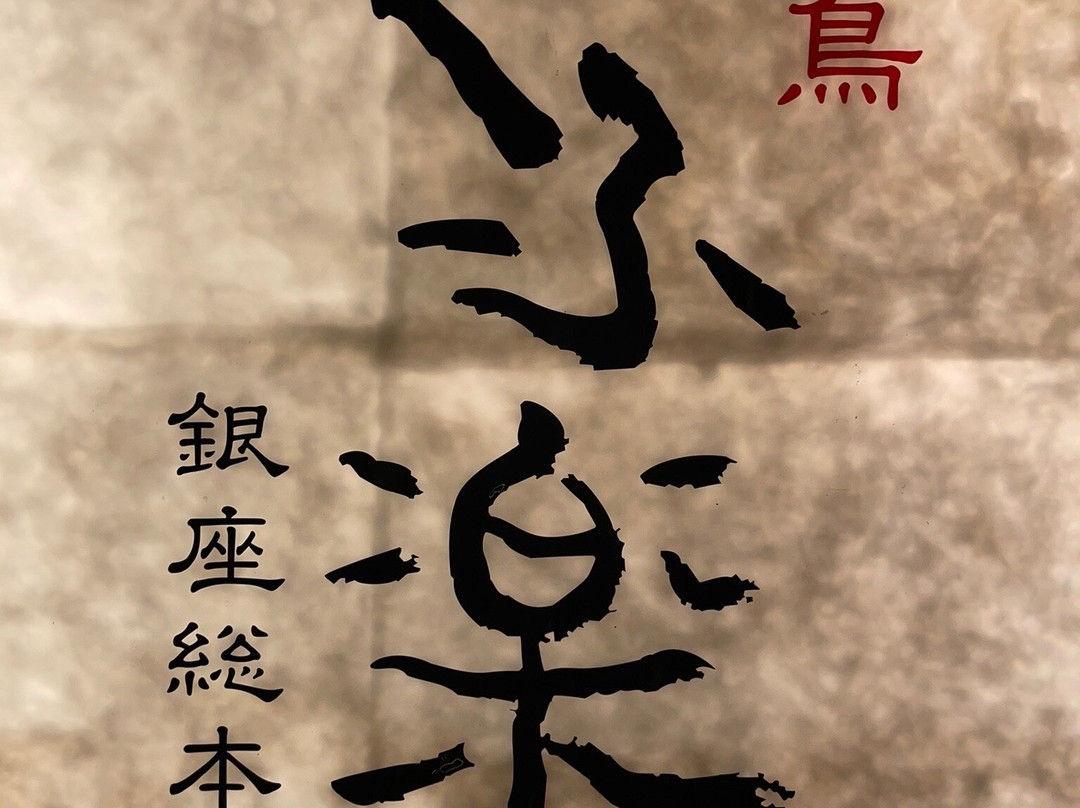 鳥
ふ楽
銀座総本